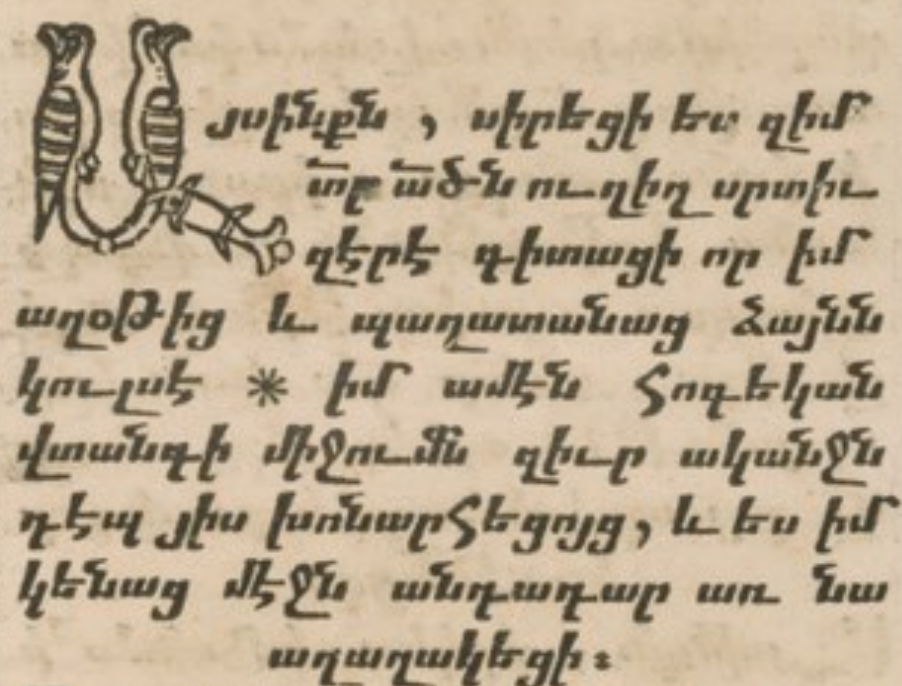 Այսինքն , սիրեցի ես զիմ
տր̄ ած̄ն ուղիղ սրտիւ
զէրէ գիտացի որ իմ
աղօթից և պաղատանաց ձայնն
կուլսէ * իմ ամէն հոգեկան
վտանգի միջումն զիւր ականջն
դէպ յիս խոնարհեցոյց, և ես իմ
կենաց մէջն անդադար առ նա
աղաղակեցի։